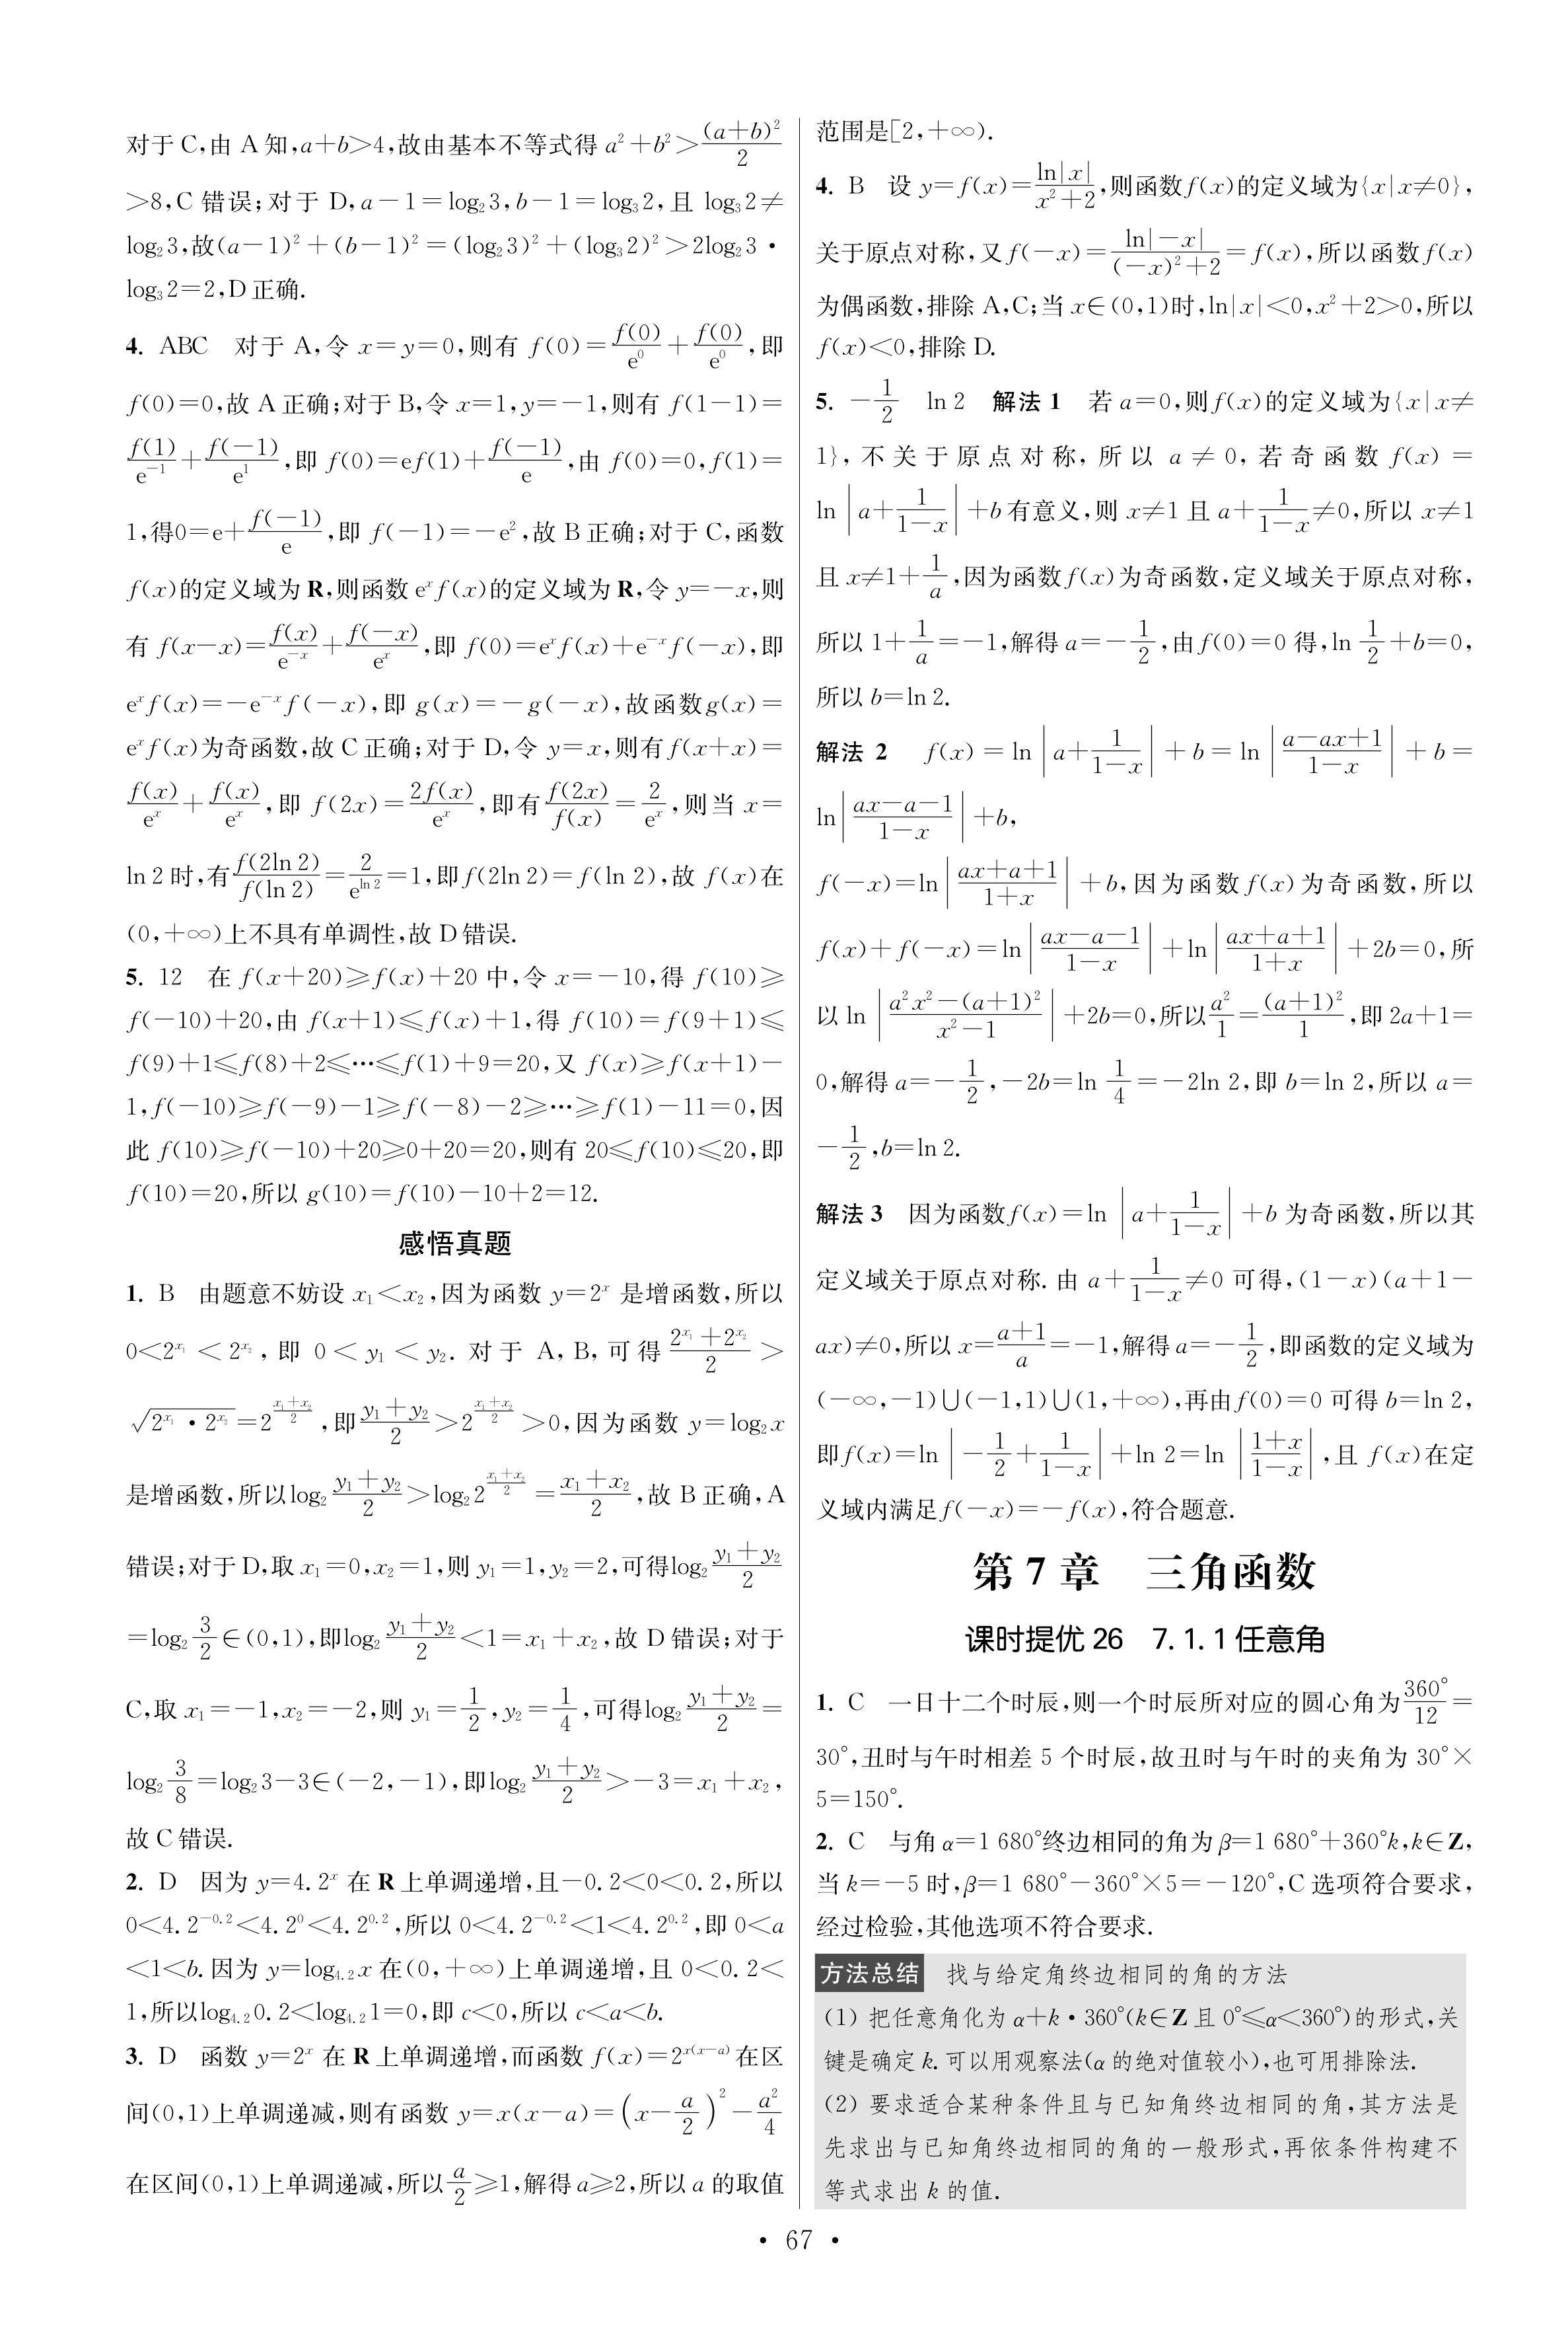 对于 C,由 A 知,a+b>4,故由基本不等式得 a²+b²>\frac{(a+b)²}{2}
>8,C 错误;对于 D,a−1=log₂3,b−1=log₃2,且 log₃2≠
log₂3,故(a−1)²+(b−1)²=(log₂3)²+(log₃2)²>2log₂3·
log₃2=2,D 正确.
4. ABC 对于 A,令 x=y=0,则有 f(0)=\frac{f(0)}{e^0}+\frac{f(0)}{e^0},即
f(0)=0,故 A 正确;对于 B,令 x=1,y=−1,则有 f(1−1)=
\frac{f(1)}{e^{-1}}+\frac{f(−1)}{e^1},即 f(0)=ef(1)+\frac{f(−1)}{e},由 f(0)=0,f(1)=
1,得0=e+\frac{f(−1)}{e},即 f(−1)=−e²,故 B 正确;对于 C,函数
f(x)的定义域为 R,则函数 e^x f(x)的定义域为 R,令 y=−x,则
有 f(x−x)=\frac{f(x)}{e^{-x}}+\frac{f(−x)}{e^x},即 f(0)=e^x f(x)+e^{-x} f(−x),即
e^x f(x)=−e^{-x} f(−x),即 g(x)=−g(−x),故函数g(x)=
e^x f(x)为奇函数,故 C 正确;对于 D,令 y=x,则有 f(x+x)=
\frac{f(x)}{e^x}+\frac{f(x)}{e^x},即 f(2x)=\frac{2f(x)}{e^x},即有\frac{f(2x)}{f(x)}=\frac{2}{e^x},则当 x=
ln 2 时,有\frac{f(2ln 2)}{f(ln 2)}=\frac{2}{e^{ln 2}}=1,即f(2ln 2)=f(ln 2),故 f(x)在
(0,+∞)上不具有单调性,故 D 错误.
5. 12 在 f(x+20)≥f(x)+20 中,令 x=−10,得 f(10)≥
f(−10)+20,由 f(x+1)≤f(x)+1,得 f(10)=f(9+1)≤
f(9)+1≤f(8)+2≤…≤f(1)+9=20,又 f(x)≥f(x+1)−
1,f(−10)≥f(−9)−1≥f(−8)−2≥…≥f(1)−11=0,因
此 f(10)≥f(−10)+20≥0+20=20,则有 20≤f(10)≤20,即
f(10)=20,所以 g(10)=f(10)−10+2=12.
感悟真题
1. B 由题意不妨设 x₁<x₂,因为函数 y=2^x 是增函数,所以
0<2^{x₁}<2^{x₂},即 0<y₁<y₂. 对于 A,B,可得\frac{2^{x₁}+2^{x₂}}{2}>
\sqrt{2^{x₁}·2^{x₂}}=2^{\frac{x₁+x₂}{2}},即\frac{y₁+y₂}{2}>2^{\frac{x₁+x₂}{2}}>0,因为函数 y=log₂x
是增函数,所以log₂\frac{y₁+y₂}{2}>log₂2^{\frac{x₁+x₂}{2}}=\frac{x₁+x₂}{2},故 B 正确,A
错误;对于D,取 x₁=0,x₂=1,则 y₁=1,y₂=2,可得log₂\frac{y₁+y₂}{2}
=log₂\frac{3}{2}∈(0,1),即log₂\frac{y₁+y₂}{2}<1=x₁+x₂,故 D 错误;对于
C,取 x₁=−1,x₂=−2,则 y₁=\frac{1}{2},y₂=\frac{1}{4},可得log₂\frac{y₁+y₂}{2}=
log₂\frac{3}{8}=log₂3−3∈(−2,−1),即log₂\frac{y₁+y₂}{2}>−3=x₁+x₂,
故 C 错误.
2. D 因为 y=4.2^x 在 R 上单调递增,且−0.2<0<0.2,所以
0<4.2^{−0.2}<4.2^0<4.2^{0.2},所以 0<4.2^{−0.2}<1<4.2^{0.2},即 0<a
<1<b. 因为 y=log_{4.2}x 在(0,+∞)上单调递增,且 0<0.2<
1,所以log_{4.2}0.2<log_{4.2}1=0,即 c<0,所以 c<a<b.
3. D 函数 y=2^x 在 R 上单调递增,而函数 f(x)=2^{x(x−a)}在区
间(0,1)上单调递减,则有函数 y=x(x−a)=(x−\frac{a}{2})²−\frac{a²}{4}
在区间(0,1)上单调递减,所以\frac{a}{2}≥1,解得a≥2,所以 a 的取值
范围是[2,+∞).
4. B 设 y=f(x)=\frac{ln|x|}{x²+2},则函数f(x)的定义域为{x|x≠0},
关于原点对称,又 f(−x)=\frac{ln|−x|}{(−x)²+2}=f(x),所以函数 f(x)
为偶函数,排除 A,C;当 x∈(0,1)时,ln|x|<0,x²+2>0,所以
f(x)<0,排除 D.
5. −\frac{1}{2} ln 2 解法 1 若 a=0,则f(x)的定义域为{x|x≠
1},不关于原点对称,所以 a≠0,若奇函数 f(x)=
ln|a+\frac{1}{1−x}|+b有意义,则 x≠1 且 a+\frac{1}{1−x}≠0,所以 x≠1
且 x≠1+\frac{1}{a},因为函数f(x)为奇函数,定义域关于原点对称,
所以 1+\frac{1}{a}=−1,解得 a=−\frac{1}{2},由f(0)=0 得,ln \frac{1}{2}+b=0,
所以 b=ln 2.
解法 2 f(x)=ln|a+\frac{1}{1−x}|+b=ln|\frac{a−ax+1}{1−x}|+b=
ln|\frac{ax−a−1}{1−x}|+b,
f(−x)=ln|\frac{ax+a+1}{1+x}|+b,因为函数 f(x)为奇函数,所以
f(x)+f(−x)=ln|\frac{ax−a−1}{1−x}|+ln|\frac{ax+a+1}{1+x}|+2b=0,所
以 ln|\frac{a²x²−(a+1)²}{x²−1}|+2b=0,所以\frac{a²}{1}=\frac{(a+1)²}{1},即 2a+1=
0,解得 a=−\frac{1}{2},−2b=ln \frac{1}{4}=−2ln 2,即 b=ln 2,所以 a=
−\frac{1}{2},b=ln 2.
解法 3 因为函数f(x)=ln|a+\frac{1}{1−x}|+b 为奇函数,所以其
定义域关于原点对称. 由 a+\frac{1}{1−x}≠0 可得,(1−x)(a+1−
ax)≠0,所以 x=\frac{a+1}{a}=−1,解得 a=−\frac{1}{2},即函数的定义域为
(−∞,−1)∪(−1,1)∪(1,+∞),再由f(0)=0 可得 b=ln 2,
即f(x)=ln|−\frac{1}{2}+\frac{1}{1−x}|+ln 2=ln|\frac{1+x}{1−x}|,且 f(x)在定
义域内满足f(−x)=−f(x),符合题意.
第 7 章 三角函数
课时提优 26 7.1.1 任意角
1. C 一日十二个时辰,则一个时辰所对应的圆心角为\frac{360°}{12}=
30°,丑时与午时相差 5 个时辰,故丑时与午时的夹角为 30°×
5=150°.
2. C 与角 α=1 680°终边相同的角为 β=1 680°+360°k,k∈Z,
当 k=−5 时,β=1 680°−360°×5=−120°,C 选项符合要求,
经过检验,其他选项不符合要求.
方法总结 找与给定角终边相同的角的方法
(1) 把任意角化为 α+k·360°(k∈Z 且 0°≤α<360°)的形式,关
键是确定 k. 可以用观察法(α 的绝对值较小),也可用排除法.
(2) 要求适合某种条件且与已知角终边相同的角,其方法是
先求出与已知角终边相同的角的一般形式,再依条件构建不
等式求出 k 的值.
· 67 ·